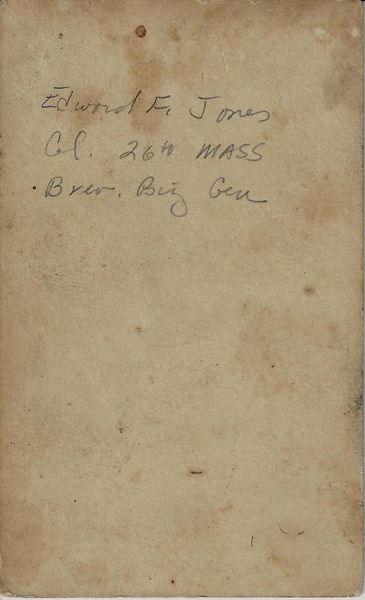 Edward F. Jones
Col. 26th MASS
Brev. Brig Gen